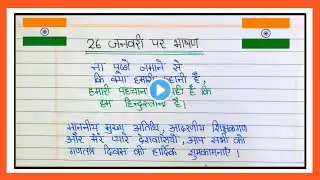 26 जनवरी पर भाषण
ना पूछो जमाने से
कि क्या हमारी कहानी है,
हमारी पहचान ही है कि
हम हिन्दुस्तानी है।
माननीय मुख्य अतिथि, आदरणीय शिक्षकगण
और मेरे प्यारे देशवासियो, आप सभी को
गणतंत्र दिवस की हार्दिक शुभकामनाएं।